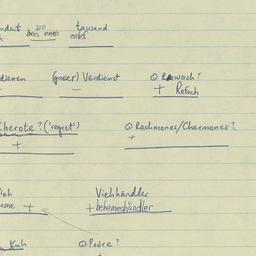 ndert 200 tausend
dienen (groser) Verdienst ⊙ Rewach?
+ Refach
Cherote? ('regret') ⊙ Rachmones/Charmones?
+ +
ieh Viehhändler
eme + + behemeshändler
Kuh ⊙ Poore?